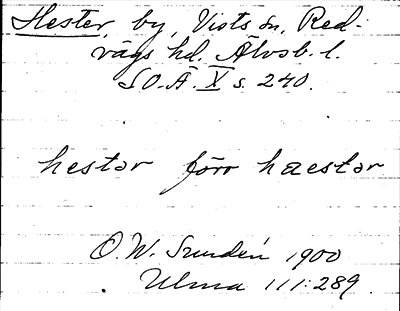 Hester, by, Vists sn, Red-
vägs hd. Älvsb. l.
SO.Ä. X s. 240.
hestər förr haestər
O. W. Sundén 1900
Ulma 111:289.